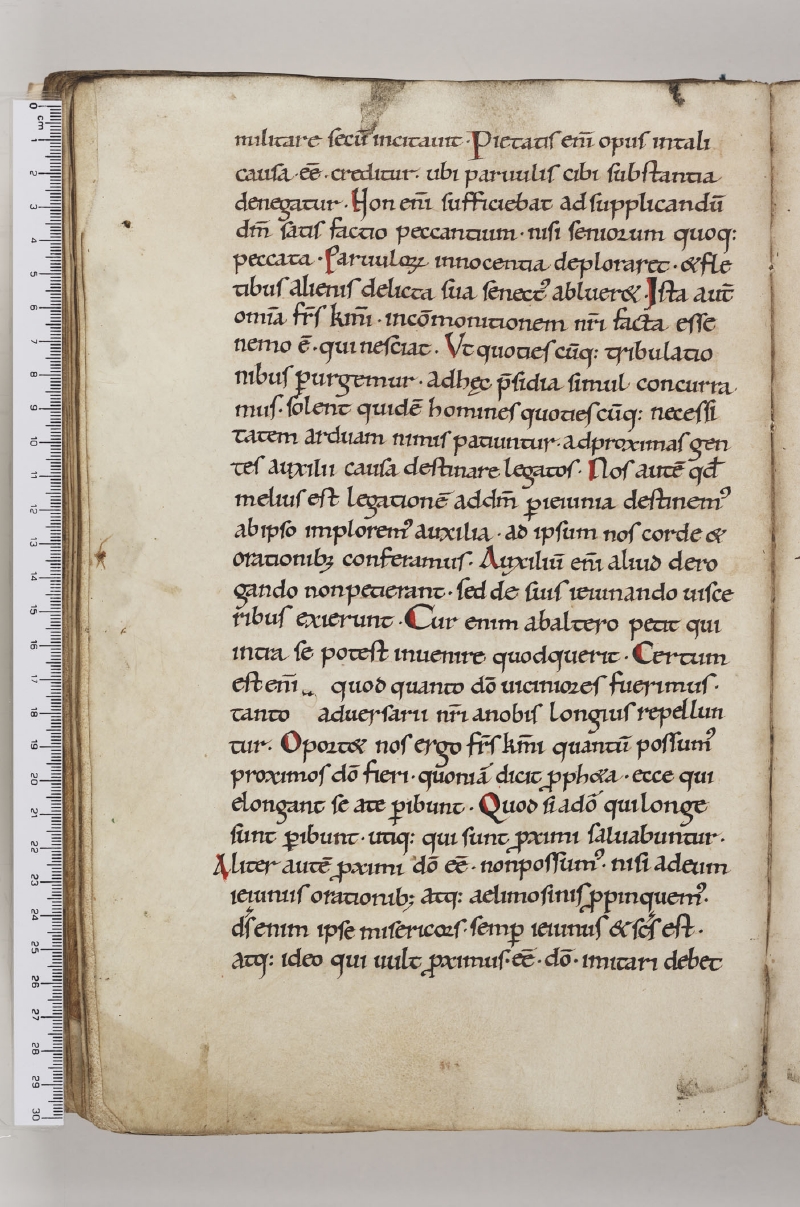 militare secū incitauit · Pietatis em̄ opus intali
causa · eē · creditur · ubi paruulis cibi substantia
denegatur · Non em̄ sufficiebat ad supplicandū
dm̄ satis factio peccantium · nisi seniorum quoq:
peccata · Paruuloꝝ innocentia deploraret · & fle
tibus alienis delicta sua senectꝰ abluer& · Ista aut̄
omīa frs̄ km̄i · incōmonitionem nr̄i facta esse
nemo ē · qui nesciat · Vt quotiescūq: tribulatio
nibus ꝑurgemur · adhęc p̄sidia simul concurra
mus · solent quidē homines quotiescūq: necessi
tatem arduam nimis patiuntur · adproximas gen
tes auxilii causa destinare legatos · Nos autē qđ
melius est legationē addm̄ ꝑ ieiunia destinemꝰ
abipso imploremꝰ auxilia · ad ipsum nos corde &
orationibꝫ conferamus · Auxiliū em̄ aliud dero
gando nonpetierant · sed de suis ieiunando uisce
ribus exierunt · Cur enim abaltero petit qui
intra se potest inuenire quodquerit · Certum
est em̄ quod quanto dō uiciniores fuerimus ·
tanto aduersarii nr̄i anobis longius repellun
tur · Oport& nos ergo frs̄ km̄i quantū possumꝰ
proximos dō fieri · quoniā dicit ꝓph&a · ecce qui
elongant se ate ꝑibunt · Quod si adō qui longe
sunt ꝑibunt · utiq: qui sunt ꝓximi saluabuntur ·
Aliter autē ꝓximi dō eē · nonpossumꝰ · nisi adeum
ieiuniis orationibꝫ atq: aelimosinis ꝓpinquemꝰ ·
ds̄ enim ipse misericors · semꝑ ieiunus & scs̄ est ·
atq: ideo qui uult ꝓximus · eē · dō · imitari debet